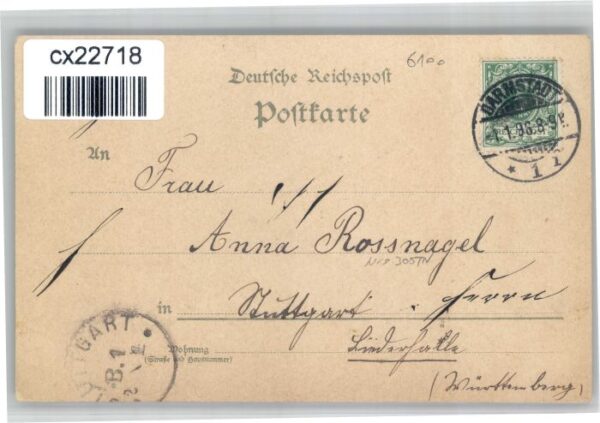 cx22718
6100
Deutsche Reichspost
Postkarte
DARMSTADT
1.1.98.8-9V.
* 1 1
An
Frau
Anna Rossnagel
in Stuttgart
Wohnung
(Straße und Hausnummer)
Liederhalle
(Württemberg)
STUTTGART
B.1